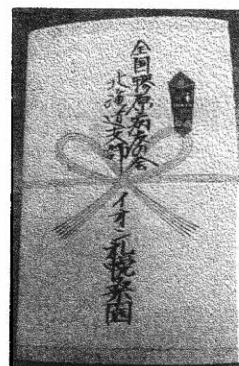 全国膠原病友の会
北海道支部
イオン札幌桑園